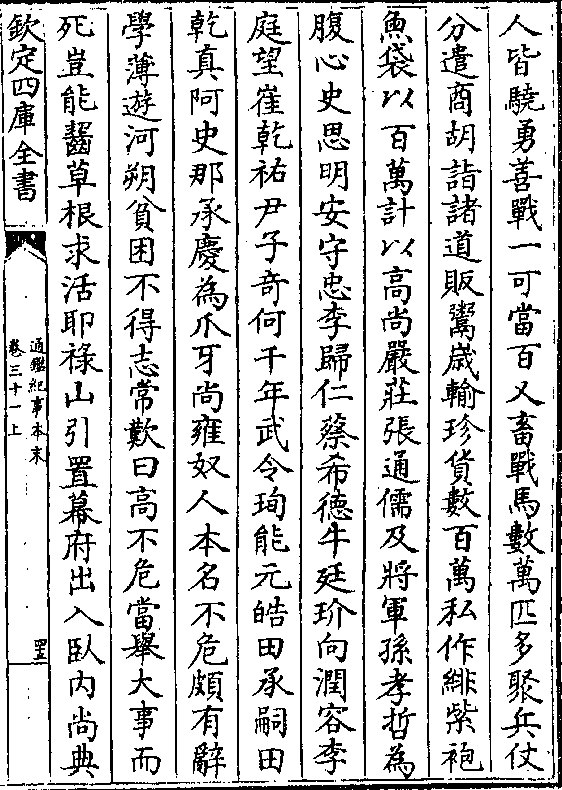 人皆驍勇善戰一可當百又畜戰馬數萬匹多聚兵仗
分遣商胡詣諸道販鬻歳輸珍貨數百萬私作緋紫袍
魚袋以百萬計以高尚嚴莊張通儒及將軍孫孝哲為
腹心史思明安守忠李歸仁蔡希德牛廷玠向潤容李
庭望崔乾祐尹子奇何千年武令珣能元皓田承嗣田
乾真阿史那承慶為爪牙尚雍奴人本名不危頗有辭
學薄遊河朔貧困不得志常歎曰高不危當舉大事而
死豈能齧草根求活耶祿山引置幕府出入臥内尚典
欽定四庫全書
通鑑紀事本末
卷三十一上